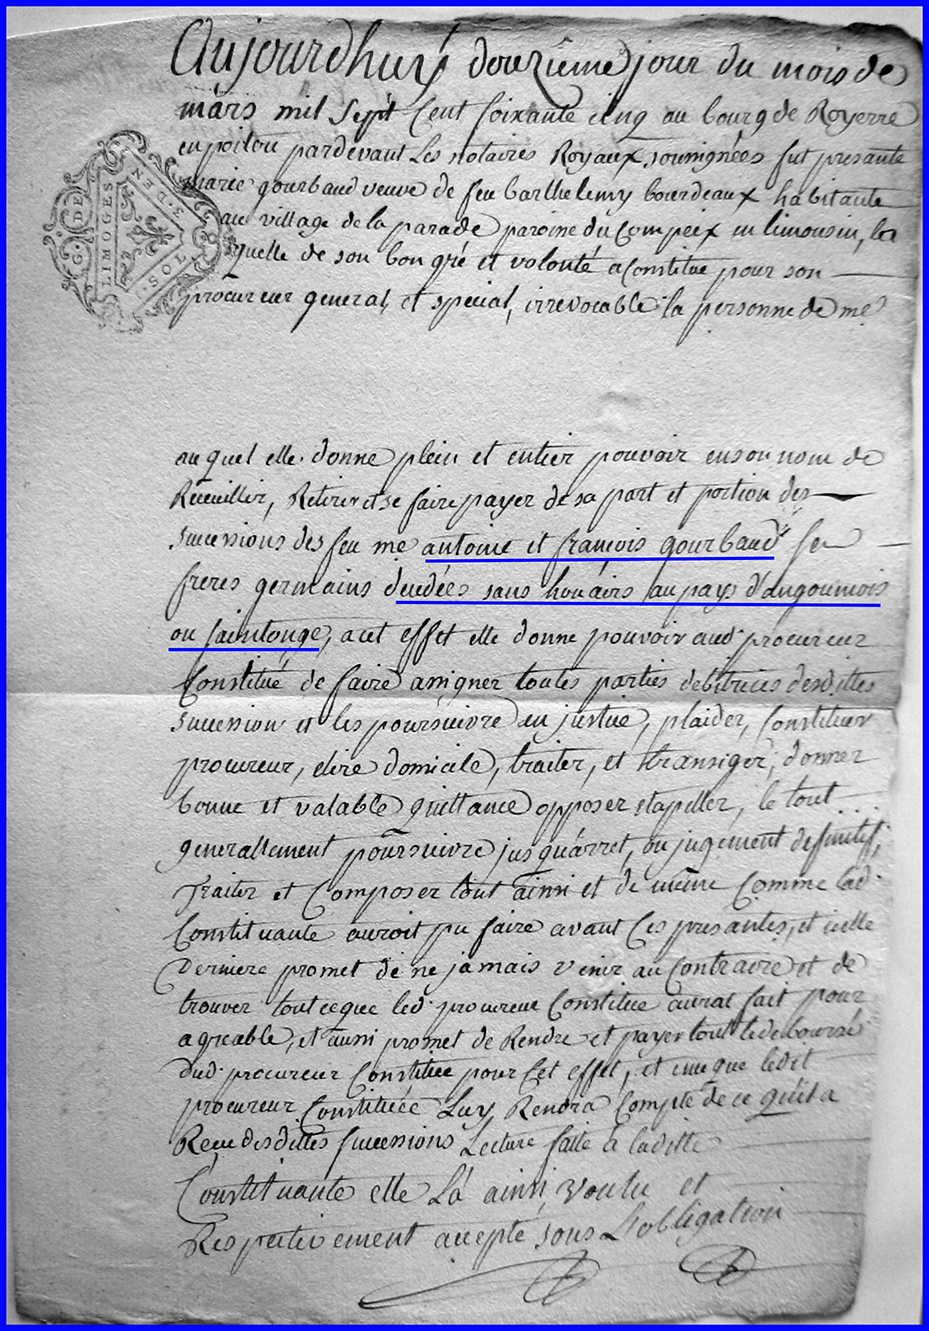 Aujourdhuy douzieme jour du mois de
mars mil sept cent soixante cinq au bourg de Royerre
en poitou pardevant les notaires Royaux, sousignées fut presante
marie gourbaud veuve de feu barthelemy bourdeaux habitante
au village de la parade paroisse du Compeix en limousin, la
quelle de son bon gré et volonté a Constitué pour son
procureur general, et special, irrevocable la personne de me
G. DE LIMOGES
3. DEN
SOL
auquel elle donne plein et entier pouvoir en son nom de
Recueillir, Retirer et se faire payer de sa part et portion des
successions des feu me antoine et françois gourbaud ses
freres germains decedées sans hoirs au pays d'angoumois
ou saintonge, a cet effet elle donne pouvoir aud. procureur
Constitué de faire assigner toutes parties debitrices desdittes
succession et les poursuivre en justice, plaider, Constituer
procureur, elire domicile, traiter, et transiger, donner
bonne et valable quittance opposer et apeller, le tout
generallement poursuivre jusqu'arret, ou jugement definitif,
Traiter et Composer tout ainsi et de même Comme lad.
Constituante auroit pu faire avant Ces presantes, et icelle
Derniere promet de ne jamais venir au Contraire et de
trouver tout ce que led. procureur Constitué aurat fait pour
agreable, et aussi promet de Rendre et payer tout le deboursé
dud. procureur Constitué pour Cet effet, et que ledit
procureur Constituée Luy Rendra Compte de ce qu'il a
Reçu desdittes successions Lecture faite a laditte
Constituante elle La ainsi voulu et
Respectivement accepté sous L'obligation